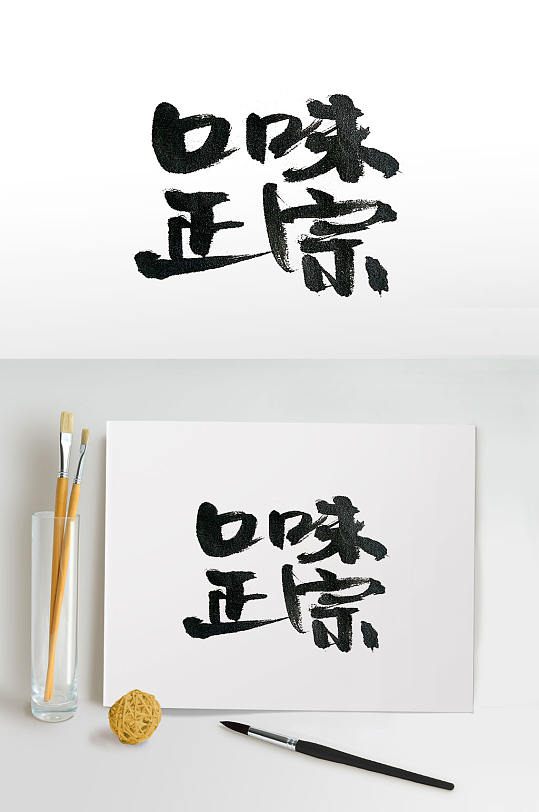 口味
正宗
口味
正宗